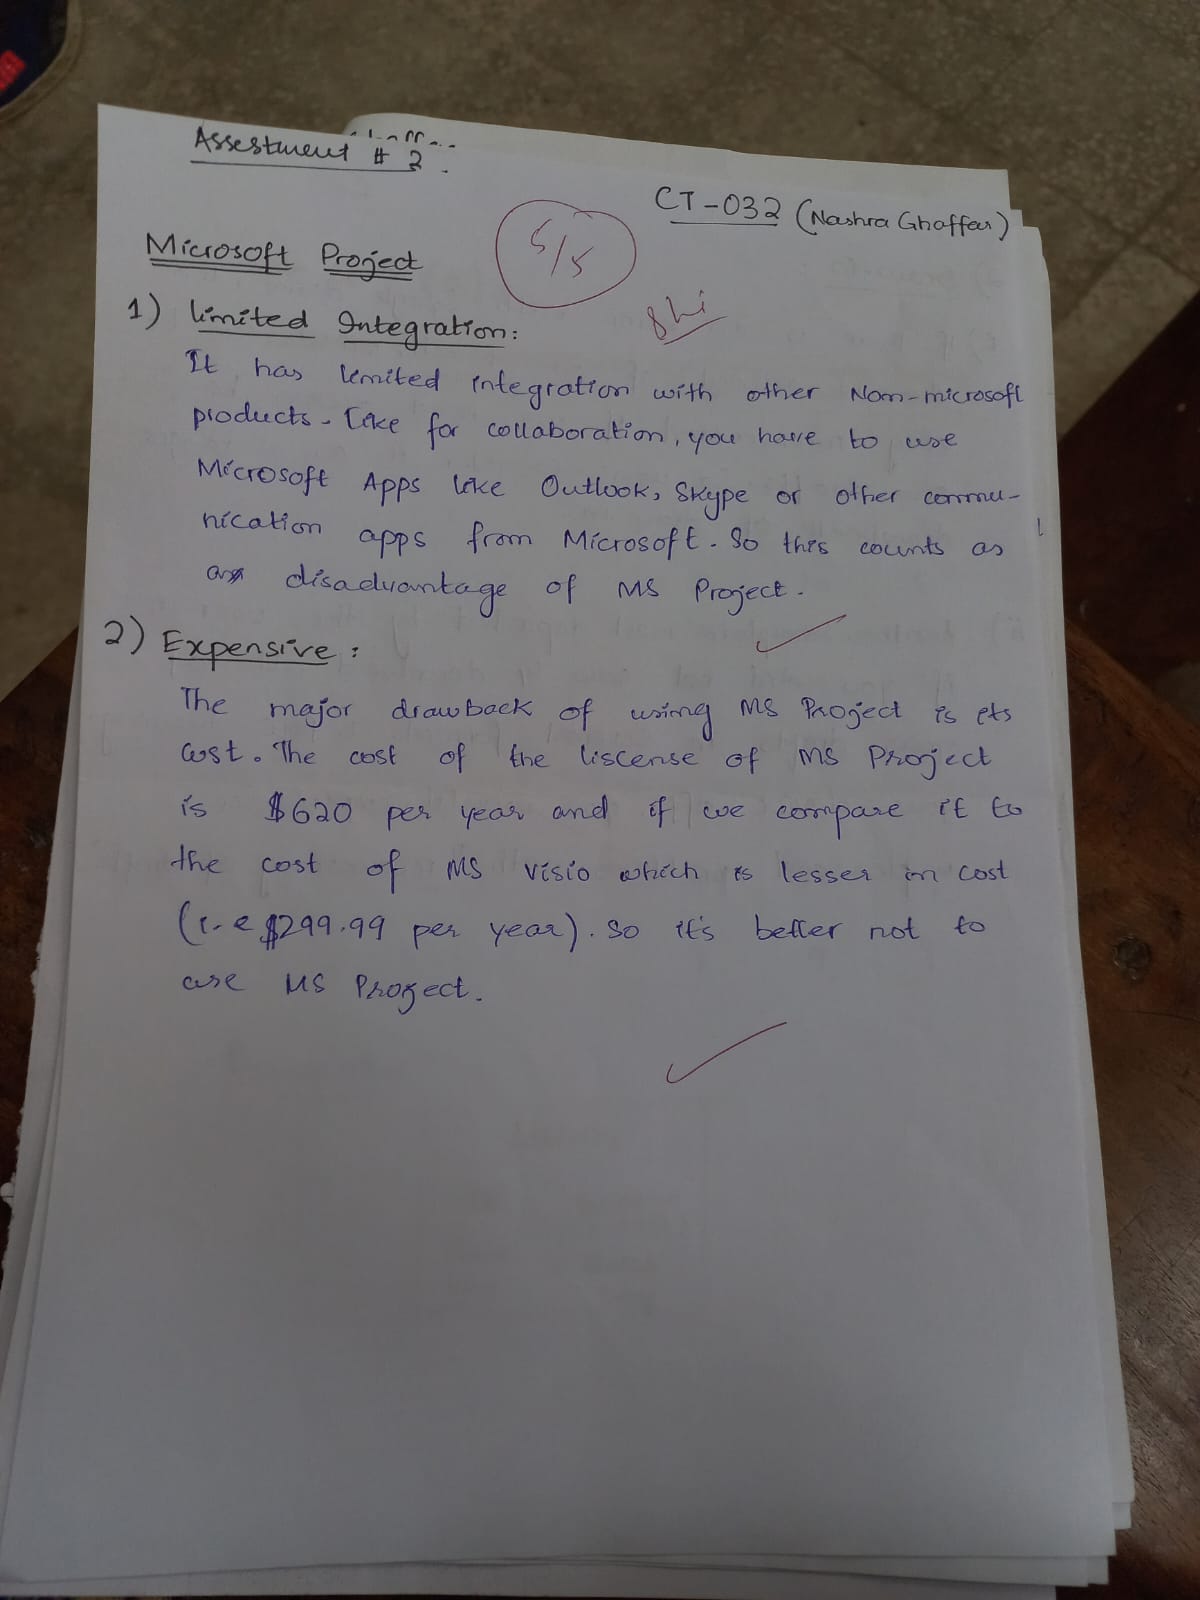 Assestment # 2
CT-032 (Nashra Ghaffar)
5/5
Microsoft Project
1) limited Integration:
It has limited integration with other Non-microsoft
products. Like for collaboration, you have to use
Microsoft Apps like Outlook, Skype or other commu-
nication apps from Microsoft. So this counts as
a disadvantage of MS Project.
2) Expensive:
The major drawback of using MS Project is its
cost. The cost of the liscense of MS Project
is $620 per year and if we compare it to
the cost of MS visio which is lesser in cost
(i.e $299.99 per year). So it's better not to
use MS Project.